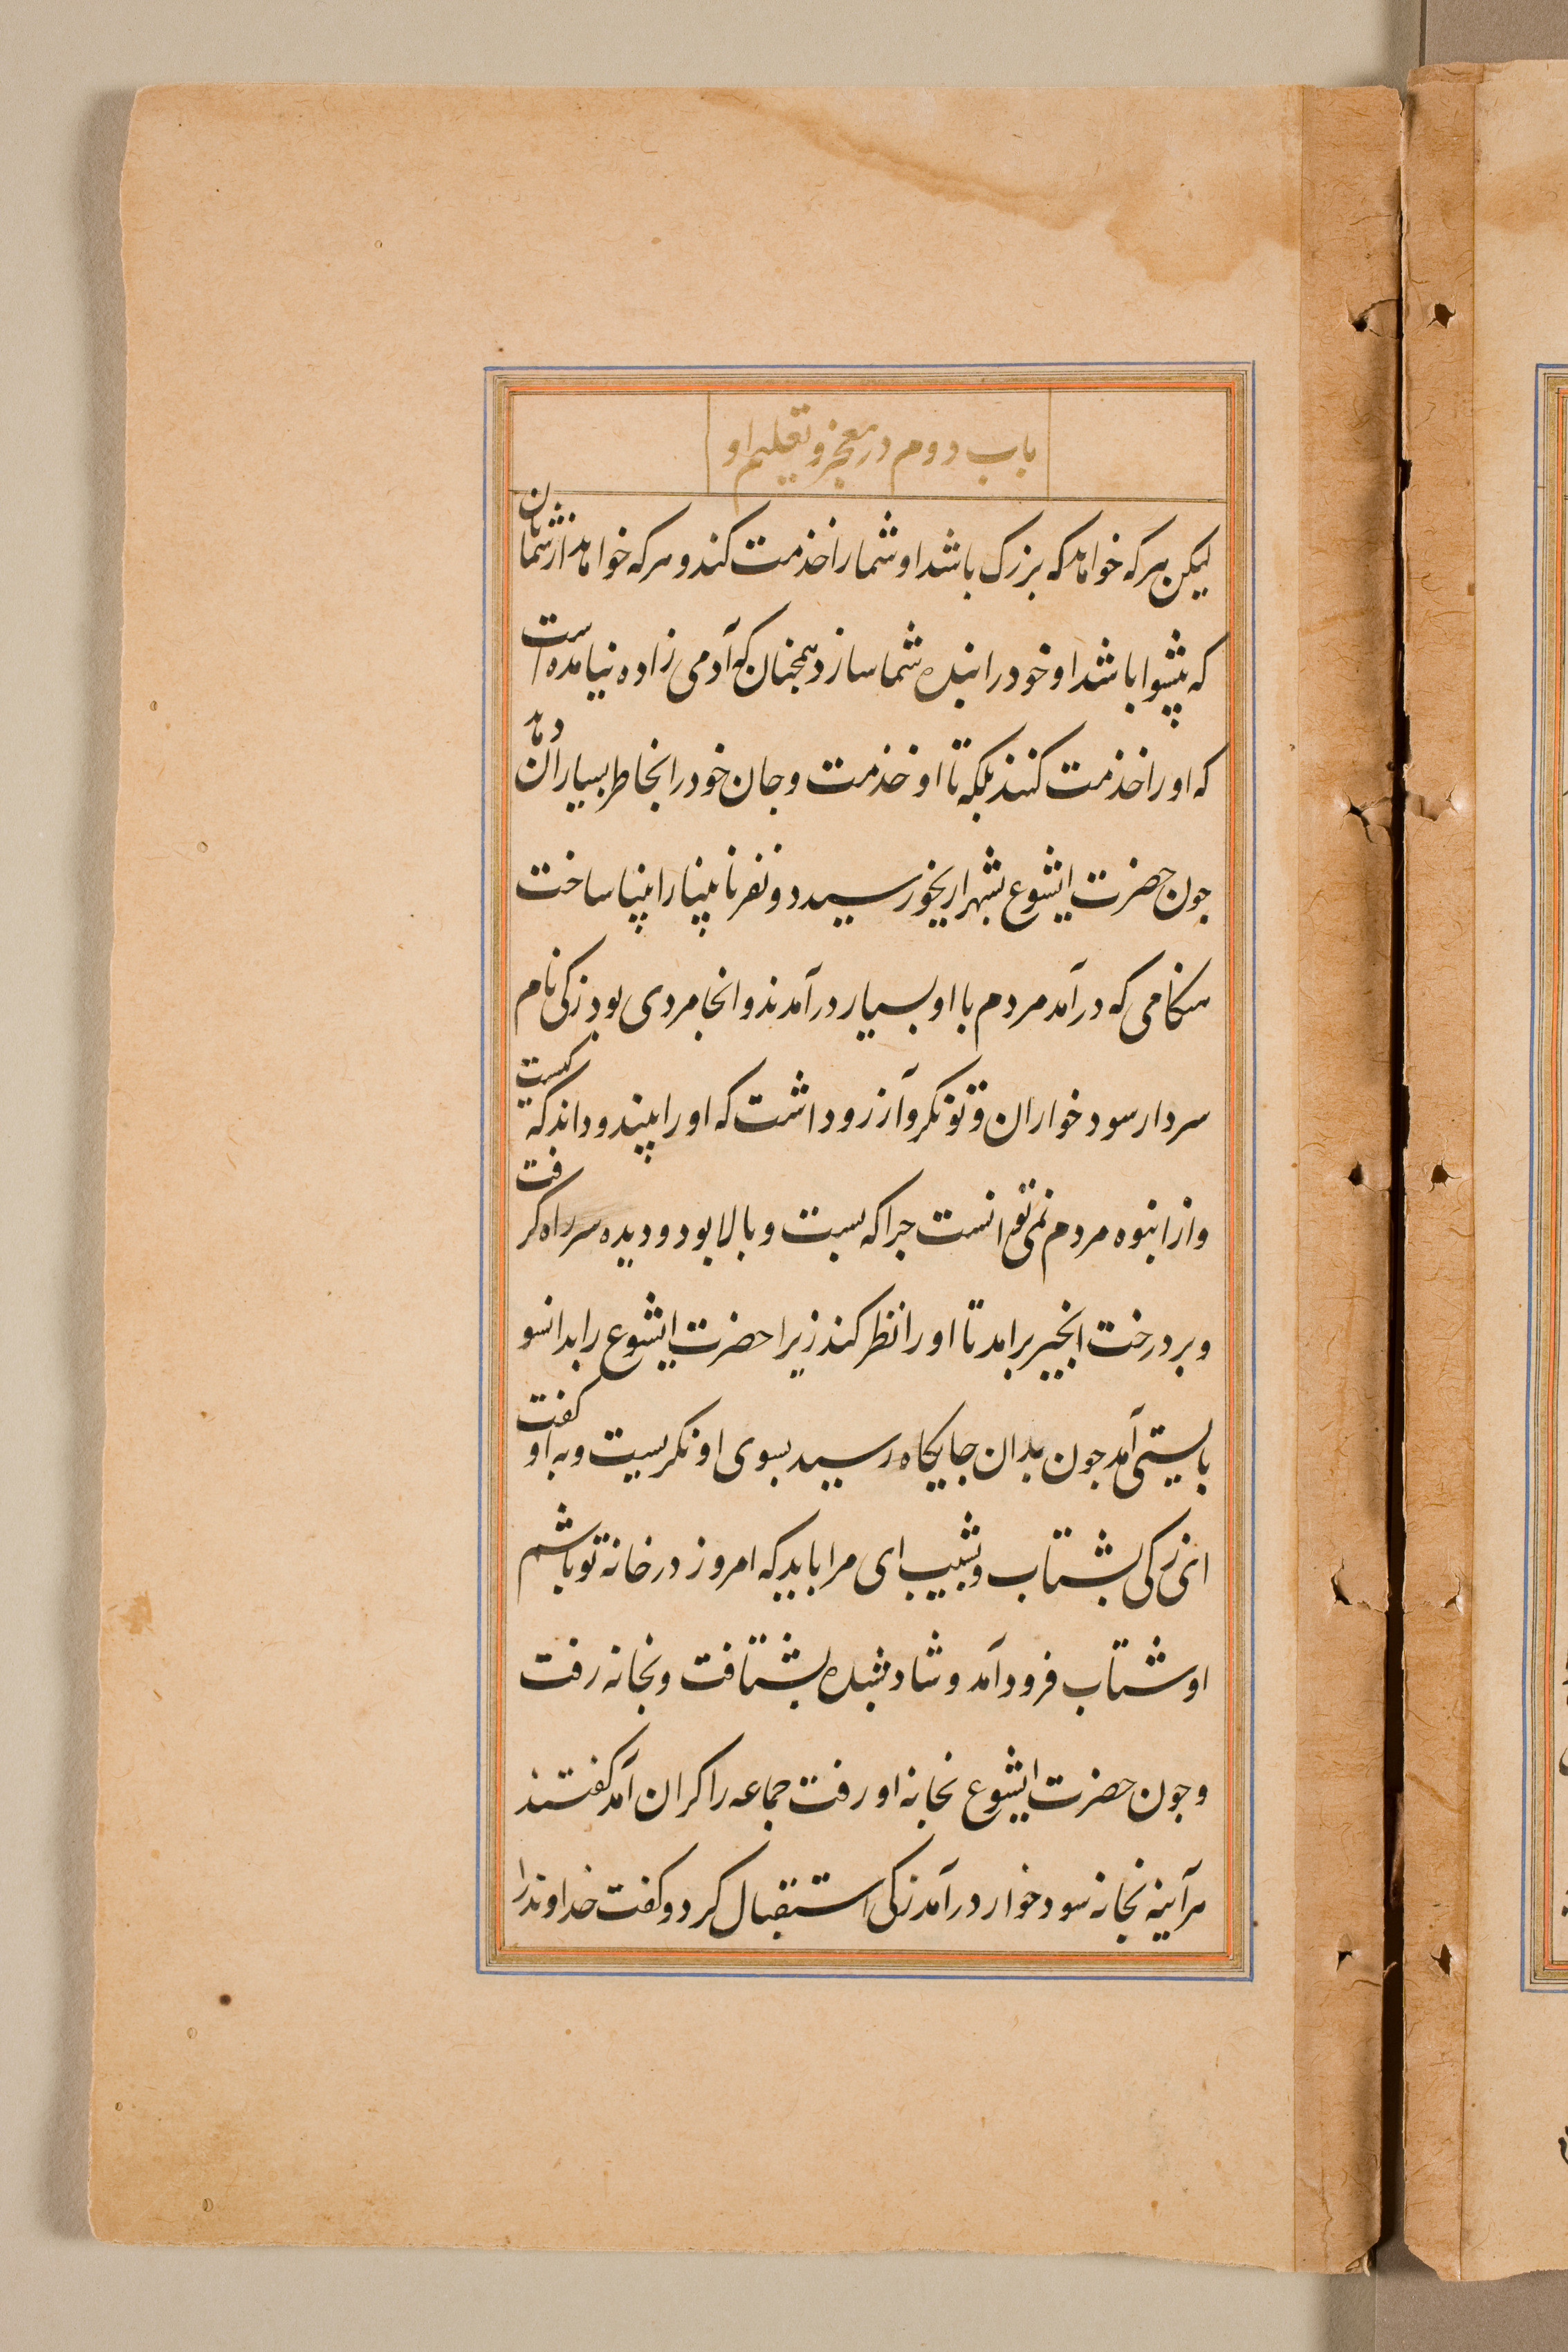 باب دوم در معجز و تعلیم او
لیکن هرکه خواهد که بزرک باشد او شما را خذمت کند و هرکه خواهد از شمایان
که پیشوا باشد او خود را بنده شما سازد همجنان که آدمی زاده نیامده است
که او را خذمت کنند بلکه تا او خذمت و جان خود را بخاطر بسیاران دهد
جون حضرت ایشوع بشهر اریخو رسید دو نفر نابینا را بینا ساخت
هنکامی که در آمد مردم با او بسیار در آمدند و انجا مردی بود زکی نام
سردار سود خواران و تونکر و آرزو داشت که او را بیند و داند که کیست
و از انبوه مردم نمی توانست جرا که بست و بالا بود و دیده سر راه کرفت
و بر درخت انجیر برامد تا او را نظر کند زیرا حضرت ایشوع را بدانسو
بایستی آمد جون بدان جایکاه رسید بسوی او نکریست و به او کفت
ای زکی بشتاب و بشیب ای مرا باید که امروز در خانه تو باشم
او شتاب فرود آمد و شاد شده بشتافت و بخانه رفت
و جون حضرت ایشوع بخانه او رفت جماعه را کران آمد کفتند
هرآینه بخانه سود خوار در آمد زکی استقبال کرد و کفت خداوندرا